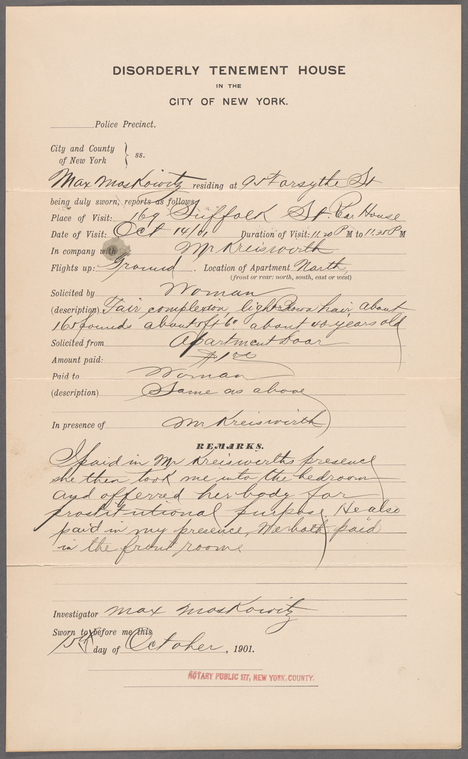 DISORDERLY TENEMENT HOUSE
IN THE
CITY OF NEW YORK.
Police Precinct.
City and County
of New York } ss.
Max Moskowitz residing at 95 Forsythe St
being duly sworn, reports as follows:
Place of Visit: 169 Suffolk St. Rear House
Date of Visit: Oct 14/01 Duration of Visit: 11.20 P M to 11.35 P M
In company with Mr Kreiswirth
Flights up: Ground Location of Apartment North
(front or rear: north, south, east or west)
Solicited by Woman
(description) Fair complexion, light Brown hair, about
165 pounds about 5 ft 6 about 40 years old
Solicited from Apartment door
Amount paid: $1.00
Paid to Woman
(description) Same as above
In presence of Mr Kreiswirth
REMARKS.
I paid in Mr Kreiswirths presence
she then took me into the bedroom
and offerred her body for
prostitutional purpose. He also
paid in my presence, We both paid
in the front room
Investigator Max Moskowitz
Sworn to before me this
15th day of October, 1901.
NOTARY PUBLIC 117, NEW YORK COUNTY.